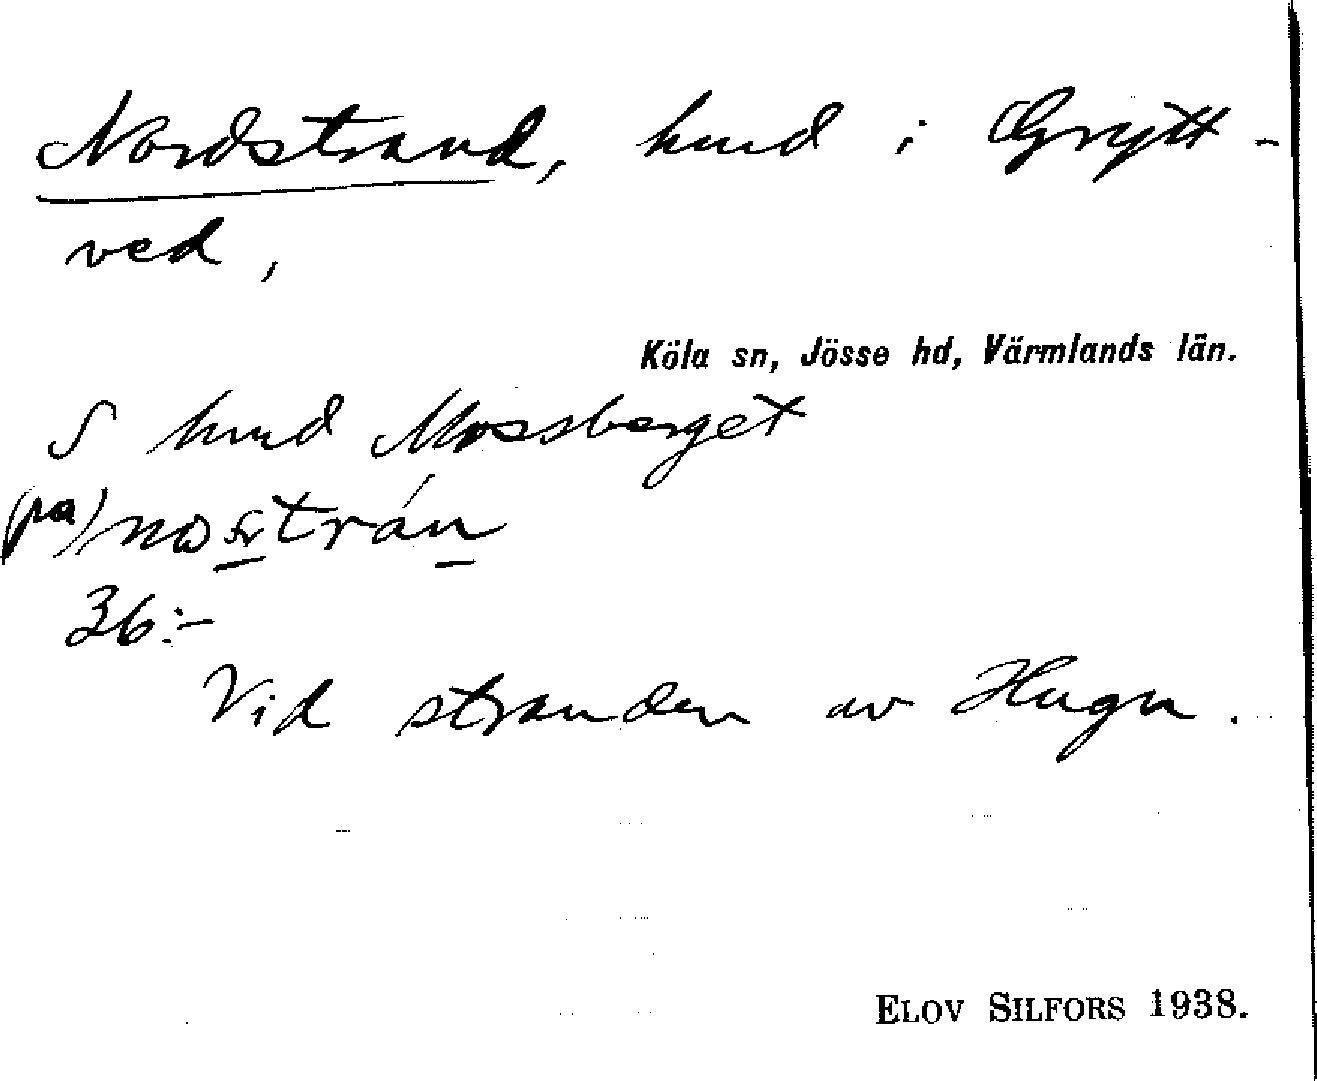 Nordstrand, hmd i Grytt-
ved,
Köla sn, Jösse hd, Värmlands län.
S hmd Mossberget
(på)
36:-
Vid stranden av Hugn.
ELOV SILFORS 1938.